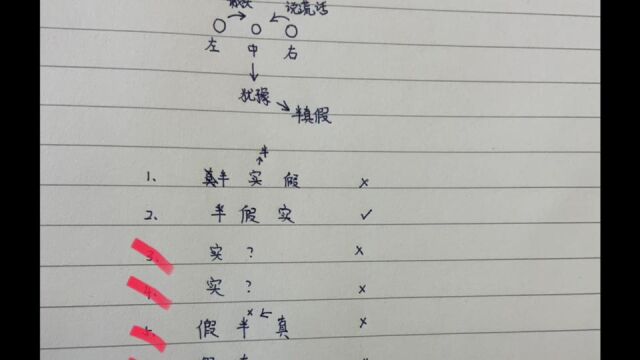 说谎话
左 中 右
犹豫
半真假
半
1. 真半 实 假 ×
2. 半 假 实 ✓
3. 实 ? ×
4. 实 ? ×
×
5. 假 半 真 ×